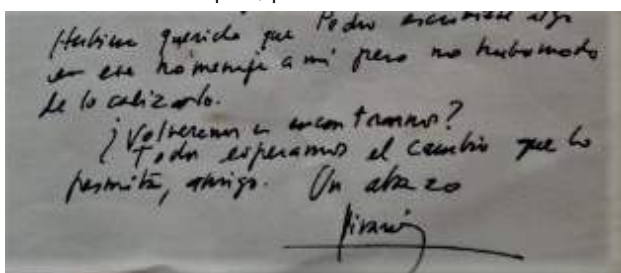 Hubiera querido que Pedro escribiese algo
en ese homenaje a mí pero no hubo modo
de localizarlo.
¿Volveremos a encontrarnos?
Todos esperamos el cambio que lo
permita, amigo. Un abrazo